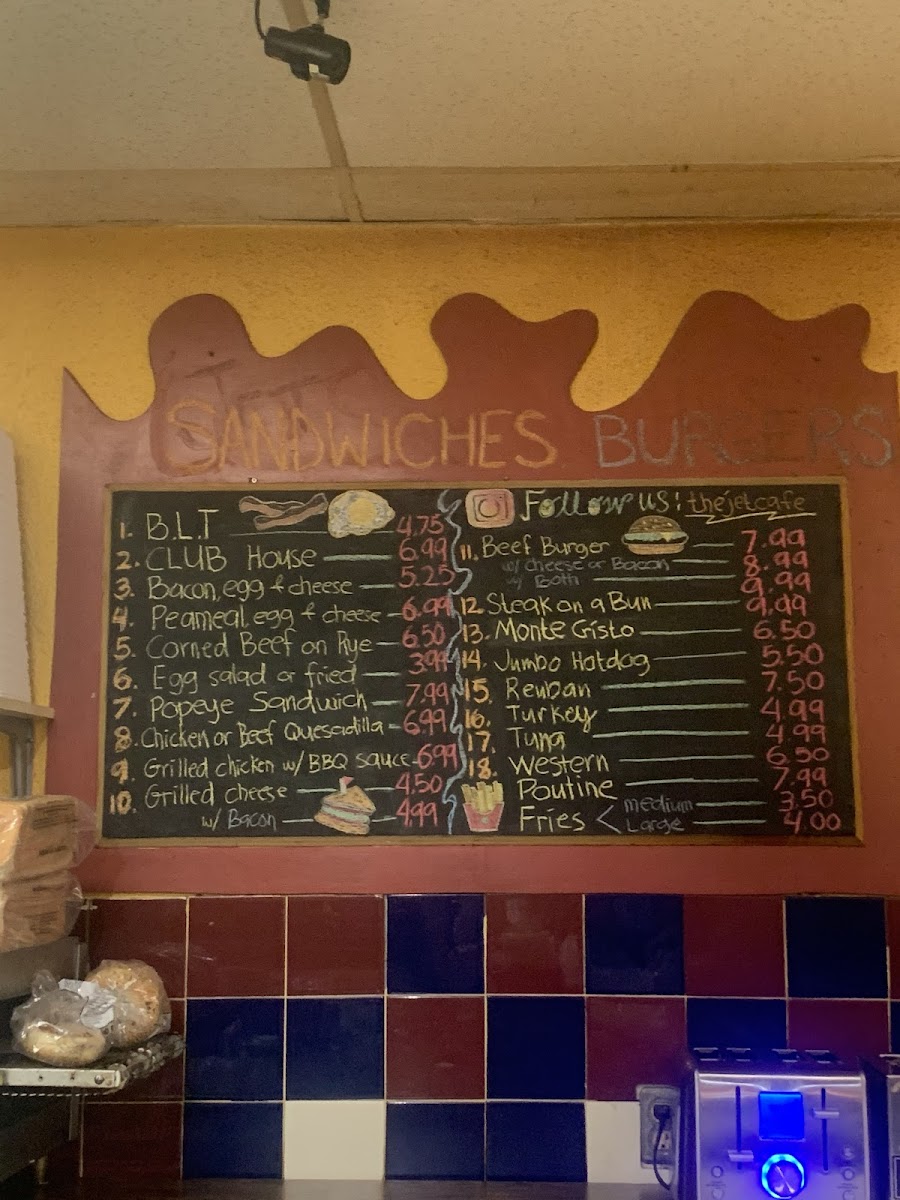 SANDWICHES BURGERS
1. B.L.T 4.75
2. CLUB House 6.99
3. Bacon, egg & cheese 5.25
4. Peameal, egg & cheese 6.99
5. Corned Beef on Rye 6.50
6. Egg salad or fried 3.99
7. Popeye Sandwich 7.99
8. Chicken or Beef Quesadilla 6.99
9. Grilled chicken w/ BBQ sauce 6.99
10. Grilled cheese 4.50
w/ Bacon 4.99
Follow us: thejetcafe
11. Beef Burger 7.99
w/ cheese or Bacon 8.99
w/ Both 9.99
12. Steak on a Bun 9.99
13. Monte Cristo 6.50
14. Jumbo Hotdog 5.50
15. Reuban 7.50
16. Turkey 4.99
17. Tuna 4.99
18. Western 6.50
Poutine 7.99
Fries < medium 3.50
Large 4.00